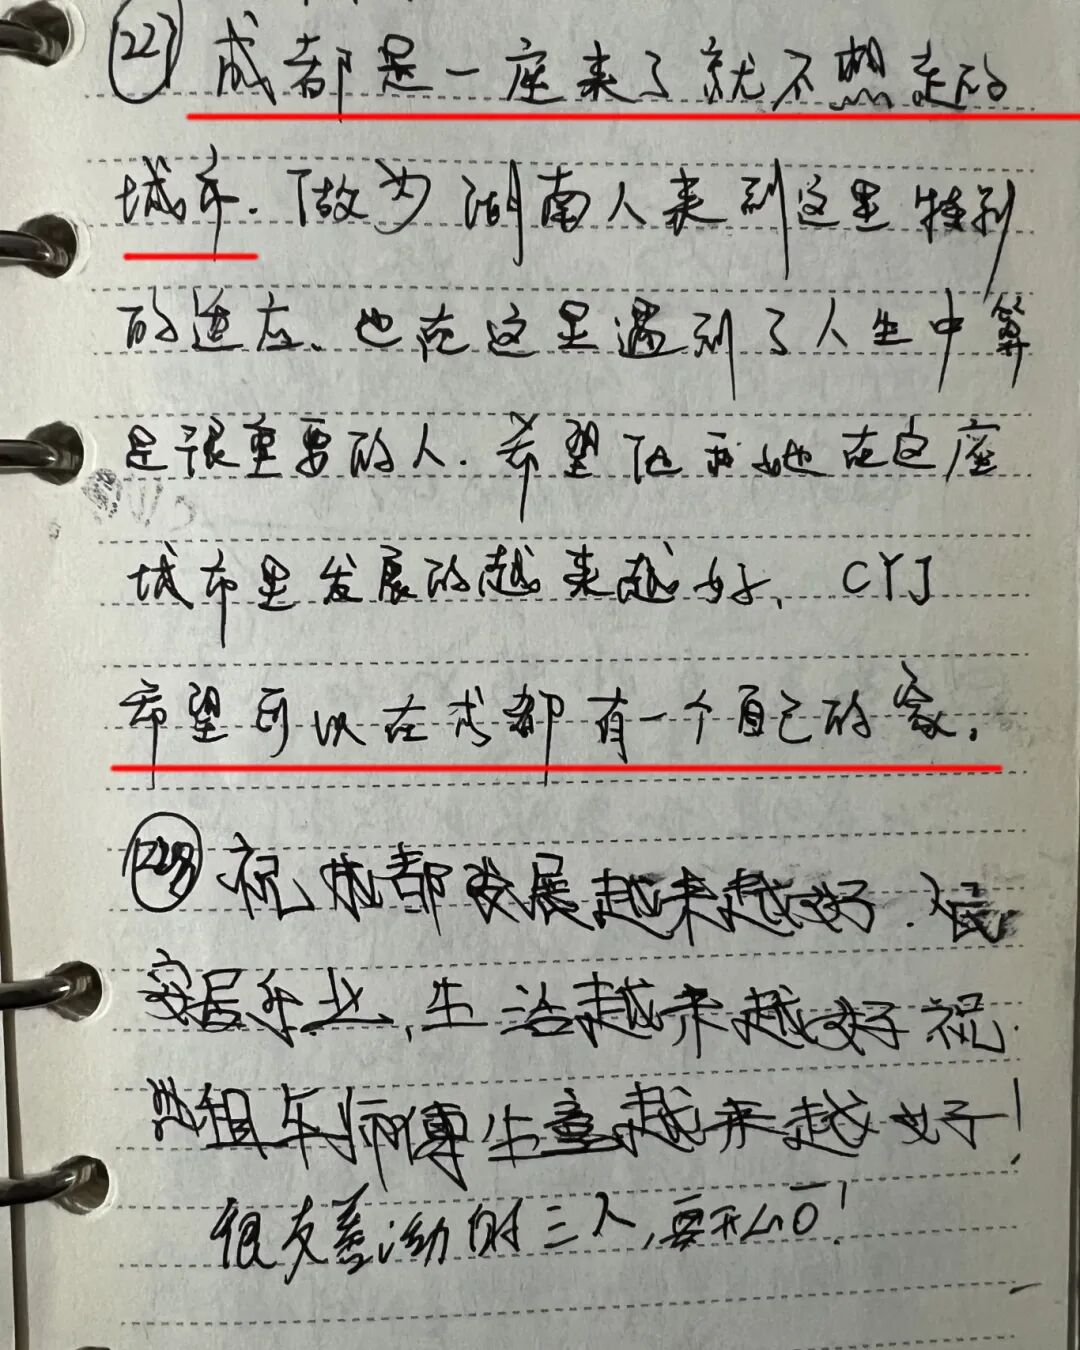 (227) 成都是一座来了就不想走的
城市.做为湖南人来到这里特别
的适应、也在这里遇到了人生中算
是很重要的人.希望他和她在这座
城市里发展的越来越好、CYJ
希望可以在成都有一个自己的家.
(228) 祝成都发展越来越好.人民
安居乐业,生活越来越好祝
出租车师傅生意越来越好!
很友善 三人,要开心